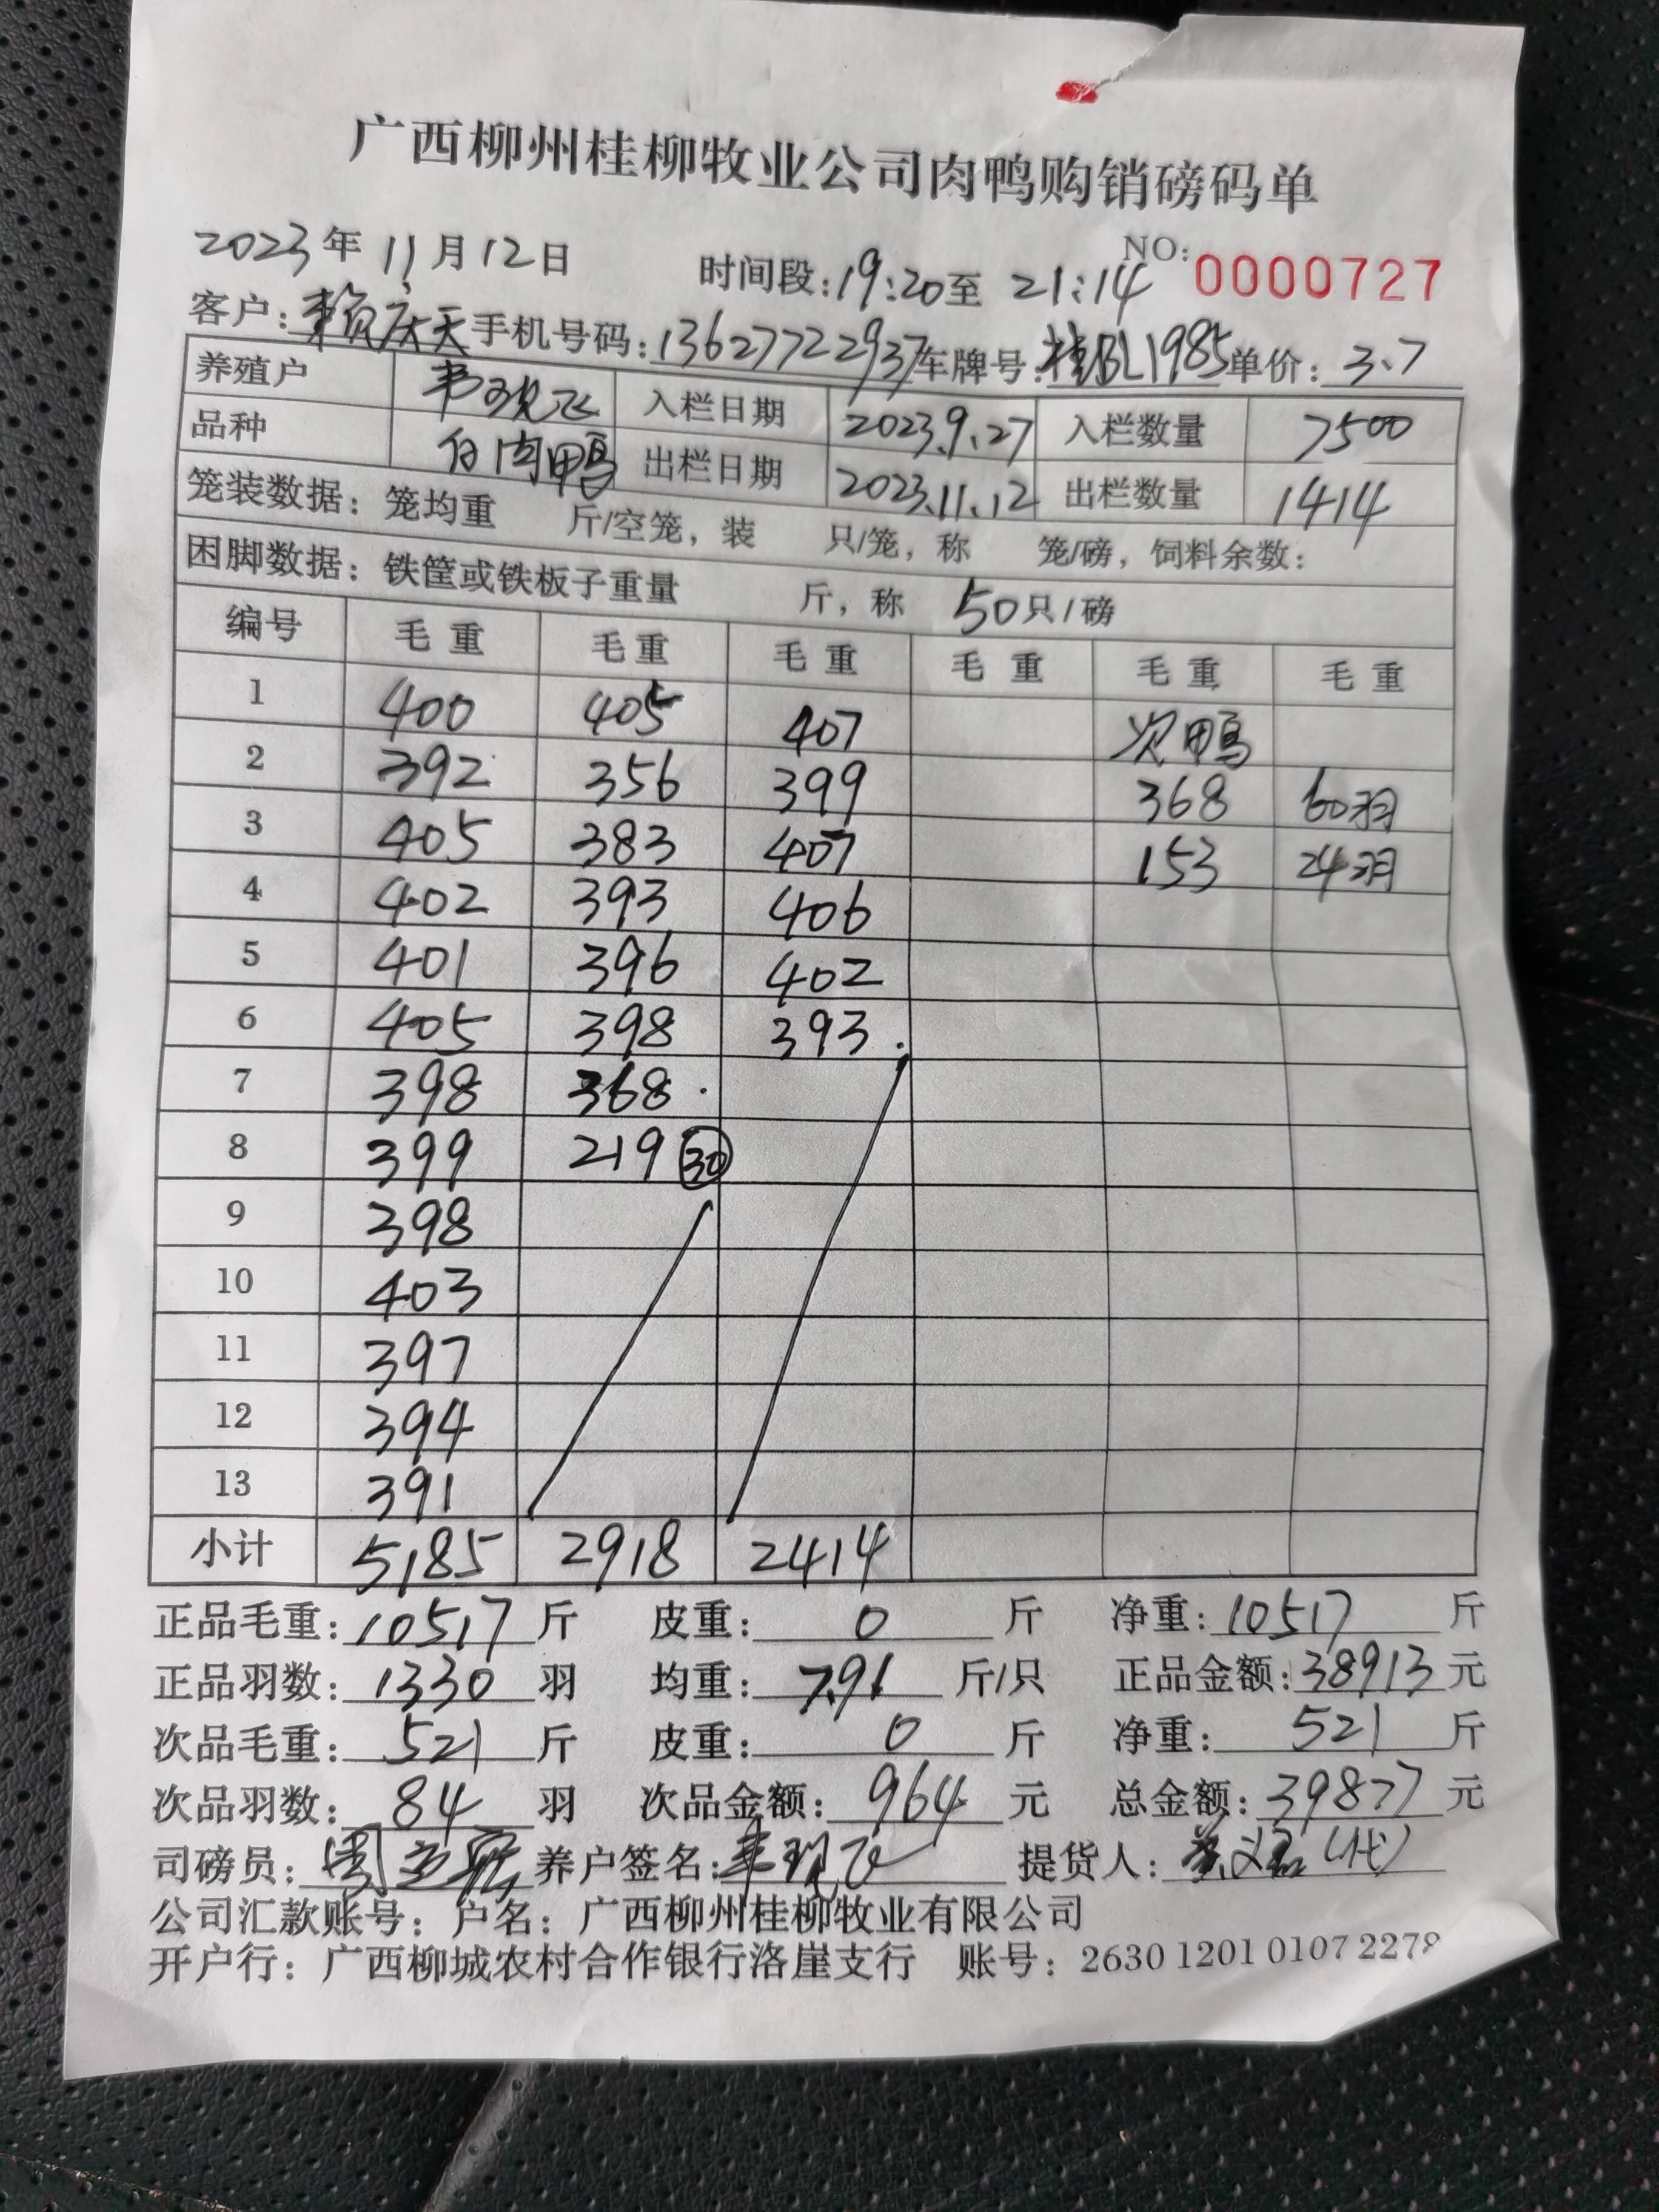 广西柳州桂柳牧业公司肉鸭购销磅码单
2023年 11月12日 时间段:19:20至 21:14 NO:0000727
客户:赖庆天 手机号码:13627722937 车牌号:桂BL1985 单价:3.7
养殖户 韦现飞 入栏日期 2023.9.27 入栏数量 7500
品种 白肉鸭 出栏日期 2023.11.12 出栏数量 1414
笼装数据:笼均重 斤/空笼,装 只/笼,称 笼/磅,饲料余数:
困脚数据:铁筐或铁板子重量 斤,称 50只/磅
编号 毛重 毛重 毛重 毛重 毛重 毛重
1 400 405 407 次鸭
2 392 356 399 368 60羽
3 405 383 407 153 24羽
4 402 393 406
5 401 396 402
6 405 398 393.
7 398 368.
8 399 219 30
9 398
10 403
11 397
12 394
13 391
小计 5185 2918 2414
正品毛重:10517斤 皮重:0斤 净重:10517斤
正品羽数:1330羽 均重:7.91斤/只 正品金额:38913元
次品毛重:521斤 皮重:0斤 净重:521斤
次品羽数:84羽 次品金额:964元 总金额:39877元
司磅员: 养户签名:韦现飞 提货人: (代)
公司汇款账号:户名:广西柳州桂柳牧业有限公司
开户行:广西柳城农村合作银行洛崖支行 账号:2630 1201 0107 2278